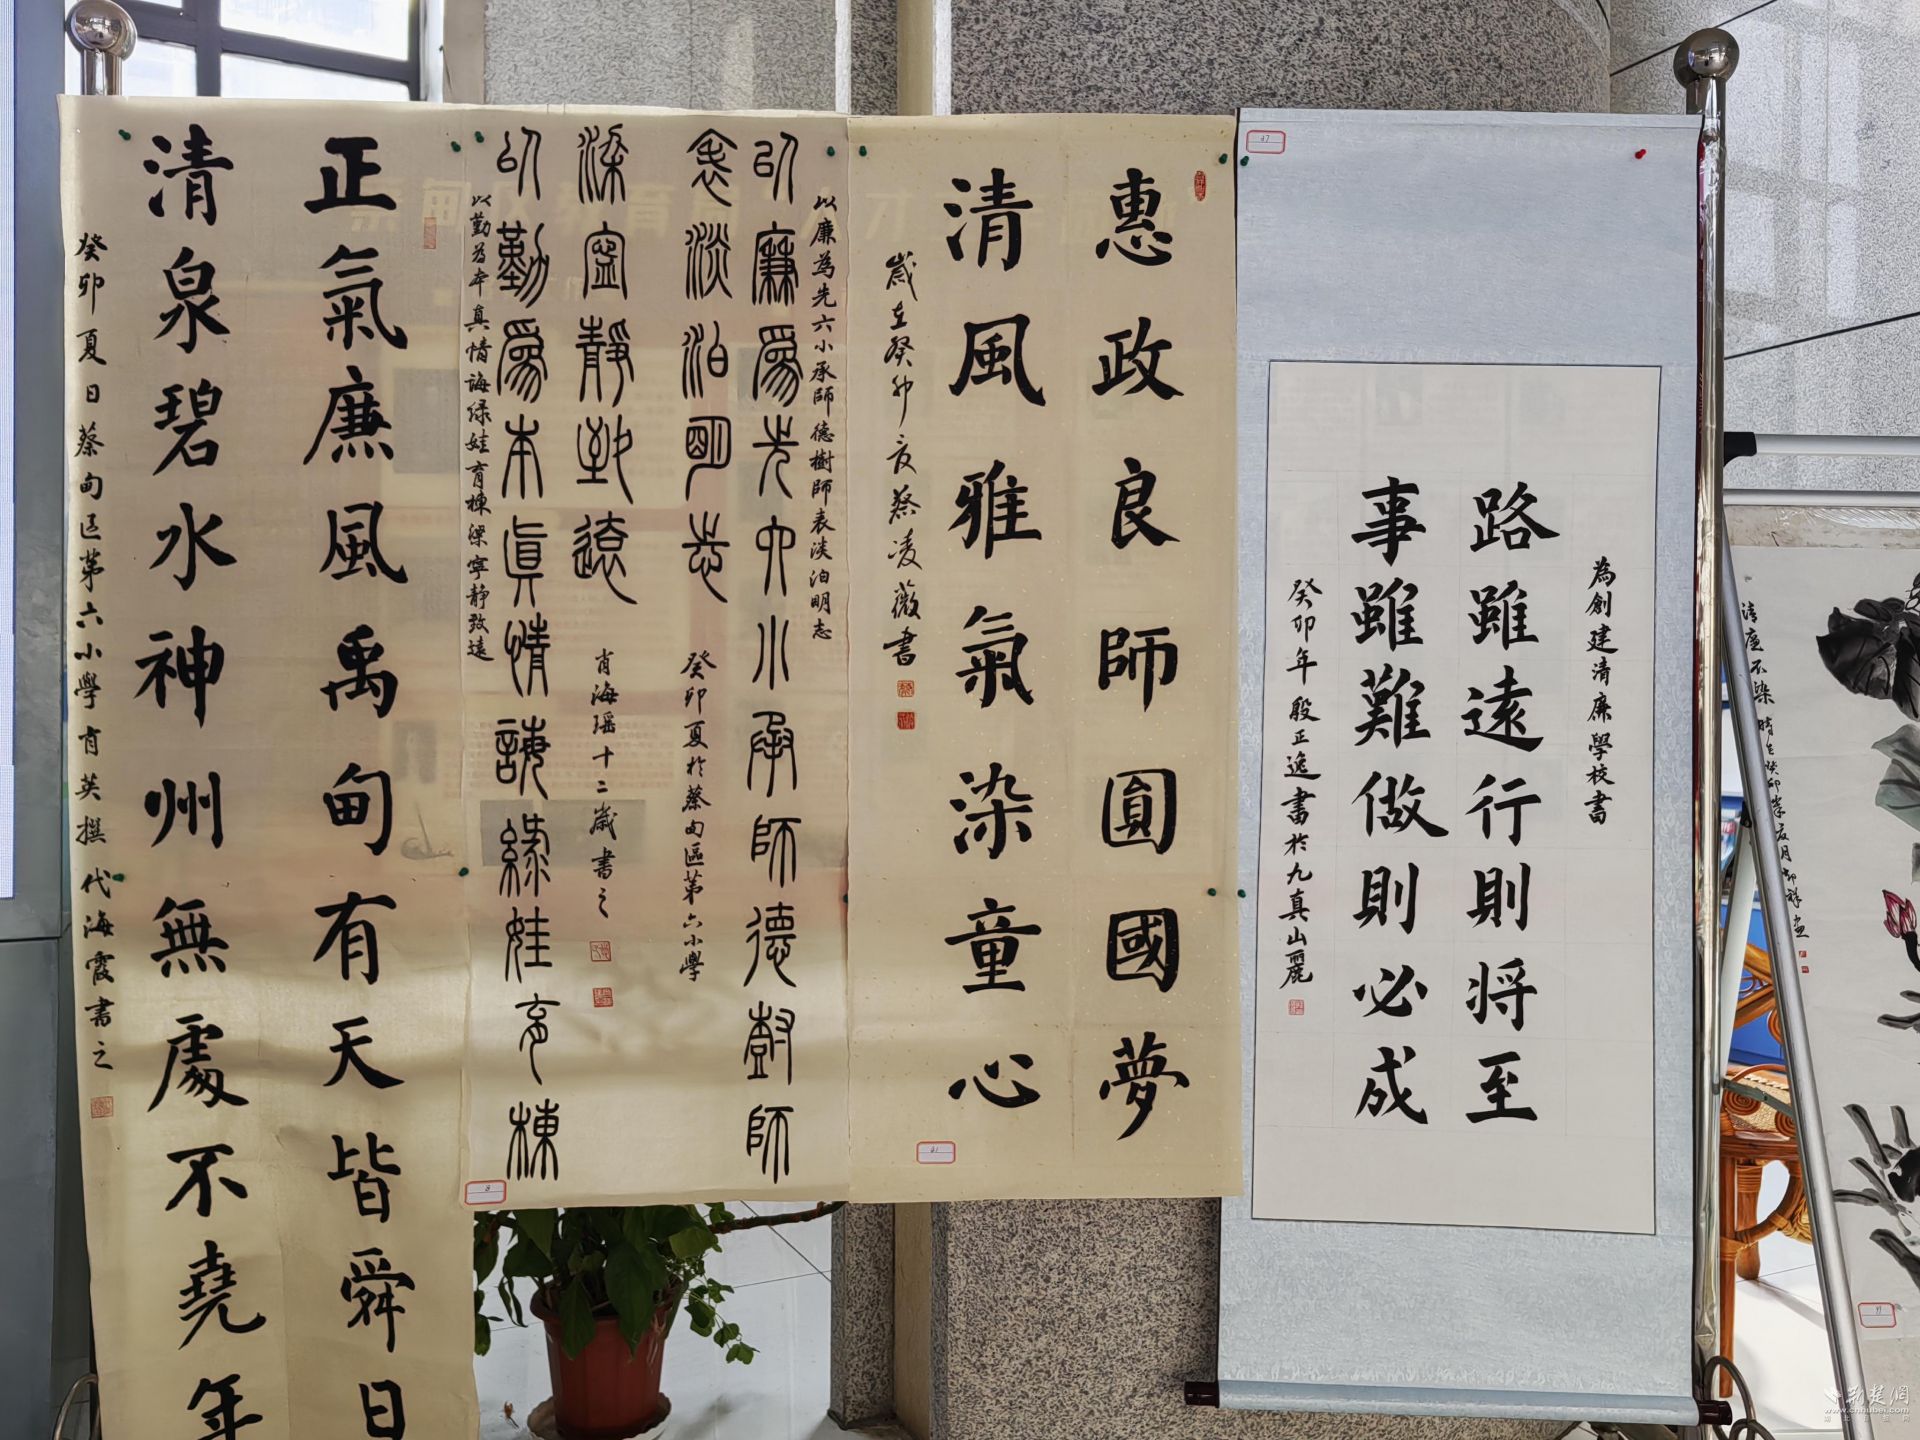 正氣廉風禹甸有天皆舜日
清泉碧水神州無處不堯年
癸卯夏日蔡甸区第六小學肖英撰代海霞書之
以廉為先六小承師德樹師表淡泊明志
以廉爲先六小承師德樹師
表淡泊明志
癸卯夏於蔡甸區第六小學
梁寧靜致遠
肖海瑶十二歲書之
以勤爲本真情誨綠娃育棟
以勤为本真情誨绿娃育棟梁寧静致遠
8
惠政良師圓國夢
清風雅氣染童心
歲在癸卯夏蔡凌薇書
21
37
為創建清廉學校書
路雖遠行則将至
事雖難做則必成
癸卯年殷正逸書於九真山麓
清廉不染
荆楚網
www.cnhubei.com